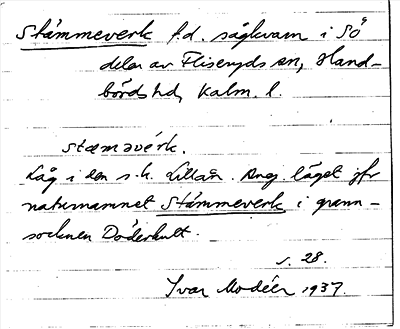 Stämmeverk f.d. sågkvarn i SÖ
delen av Fliseryds sn, Hand-
börds hd, Kalm. l.
stæməvérk.
Låg i den s.k. Lillån. Ang. läget jfr
naturnamnet Stämmeverk i grann-
socknen Döderhult.
s. 28.
Ivar Modéer 1937.